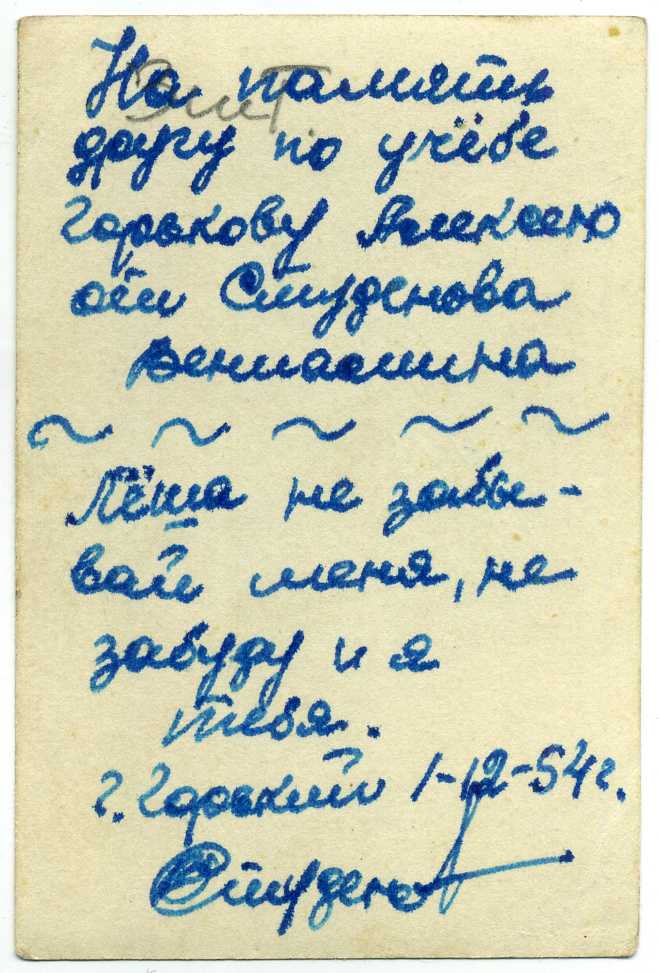 На память
другу по учёбе
Горькову Алексею
от Студенова
Вениамина
~ ~ ~ ~ ~
Лёша не забы-
вай меня, не
забуду и я
тебя.
г. Горький 1-12-54 г.
Студенов